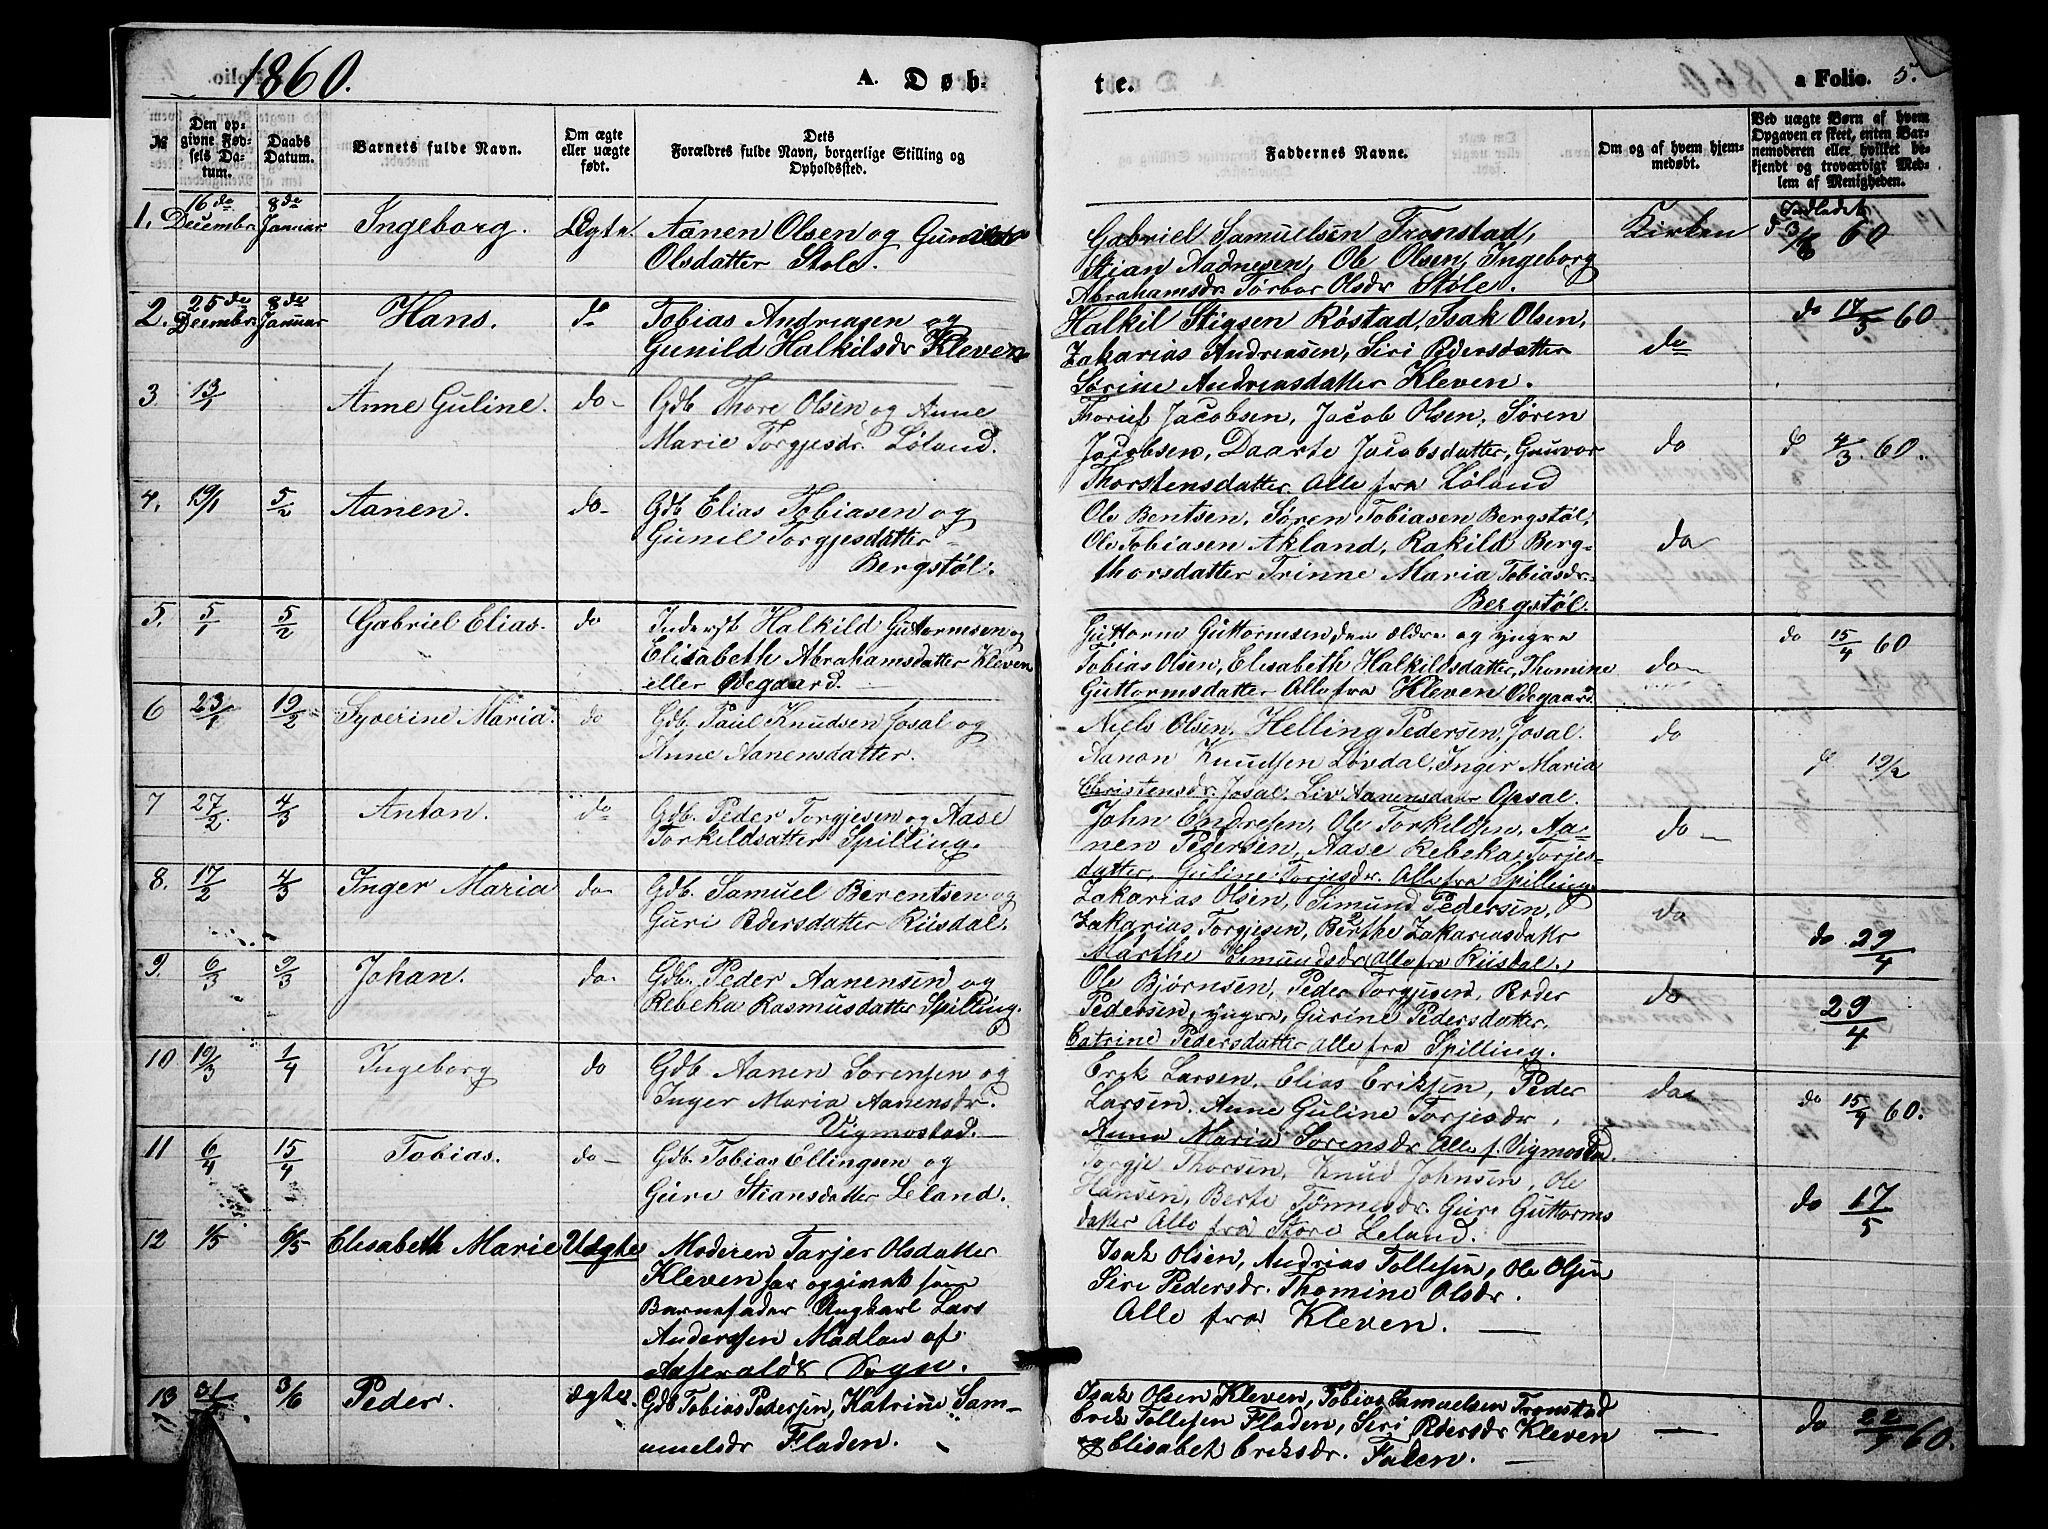 1860. A. Døb-
№ Den opgivne Fødsels Datum. Daabs Datum. Barnets fulde Navn. Om ægte eller uægte født. Dets Forældres fulde Navn, borgerlige Stilling og Opholdssted.
1. 16de Decembr 8de Januar Ingeborg. Ægte. Aanen Olsen og
Olsdatter Støle.
2. 25de Decembr 8de Januar Hans. do Tobias Andreasen og
Gunild Halkilsdr Kleven
3 13/1 Anne Guline. do- Gdb Thore Olsen og Anne
Marie Torgjesdr. Løland.
4. 19/1 5/2 Aanen. do- Gdb Elias Tobiasen og
Gunil Torgjesdatter
Bergstøl.
5. 5/1 5/2 Gabriel Elias. do Inderst Halkild Guttormsen og
Elisabeth Abrahamsdatter Kleven
eller Ødegaard.
6 23/1 19/2 Syverine Maria. do Gdb. Paul Knudsen Josal og
Anne Aanensdatter.
7 27/2 4/3 Anton. do Gdb. Peder Torgjesen og Aase
Torkildsatter Spilling.
8. 17/2 4/3 Inger Maria do- Gdb. Samuel Berentsen og
Guri Pedersdatter Riisdal.
9. 6/3 9/3 Johan. do- Gdb. Peder Aanensen og
Rebeka Rasmusdatter Spilling.
10 19/3 1/4 Ingeborg do Gdb Aanen Sørensen og
Inger Maria Aanensdr.
Vigmostad.
11 6/4 15/4 Tobias. do- Gdb. Tobias Ellingsen og
Gure Stiansdatter Leland.
12 1/5 6/5 Elisabeth Marie Uægte Moderen Tarjer Olsdatter
Kleven har opgivet som
Barnefader Ungkarl Lars
Andersen Mødlan af
Aaseralds Sogn.
13 31/ 3/6 Peder. Ægte. Gdb Tobias Pedersen, Katrine Sam-
uelsdr Fladen.
te. a Folio. 5.
Faddernes Navne. Om og af hvem hjemmedøbt. Ved uægte Børn af hvem Opgaven er skeet, enten Barnemoderen eller hvilket bekjendt og troværdigt Medlem af Menigheden.
Gabriel Samuelsen Tronstad, Kirken Indledet
Stian Aadnesen, Ole Olsen, Ingeborg 60
Abrahamsdr Torbor Olsdr Støle.
Halkil Stigsen Røstad, Isak Olsen, do 17/5 60
Zakarias Andreasen, Siri Pedersdatter do
Sørine Andreasdatter Kleven.
Thorief Jacobsen, Jacob Olsen, Søren
Jacobsen, Daarte Jacobsdatter, Gunvor do 4/3 60.
Thorstensdatter Alle fra Løland
Ole Bentsen, Søren Tobiasen Bergstøl,
Ole Tobiasen Akland, Rakild Berg- do
thorsdatter Trinne Maria Tobiasdr.
Bergstøl.
Guttorm Guttormsen den ældre og yngre do 15/4 60
Tobias Olsen, Elisabeth Halkildsdatter, Thomine do
Guttormsdatter Alle fra Kleven Ødegaard
Niels Olsen, Helling Pedersen, Josal. do
Aanon Knudsen Løvdal, Inger Maria 19/2
Christensdr. Josal, Liv Aanensdatter Opsal.
John Endresen, Ole Torkildsen, Aa- do
nen Pedersen, Aase Rebeka Torjes-
datter, Guline Torjesdr. Alle fra Spilling
Zakarias Olsen, Simund Pedersen, do
Zakarias Torgjesen, Berthe Zakariasdatter do 29/4
Marthe Simundsdr (Alle fra Riisdal.)
Ole Bjørnsen, Peder Torgjesen, Peder do
Pedersen, yngre, Gurine Pedersdatter, 29/4
Catrine Pedersdatter alle fra Spilling.
Erik Larsen, Elias Eriksen, Peder do
Larsen, Anne Guline Torjesdr, do 15/4 60.
Anna Maria Sorensdr Alle f. Vigmostad.
Torgje Thorsen, Knud Johnsen, Ole
Hansen, Berte Tønnesdr. Gure Guttorms do 17/5
datter Alle fra Store Leland.
Isak Olsen, Andrias Tollefsen, Ole Olsen
Siri Pedersdr. Thomine Olsdr.
Alle fra Kleven.
Isak Olsen Kleven, Tobias Samuelsen Tronstad
Erik Tollefsen Fladen, Siri Pedersdr Kleven do 22/7 60.
og Elisabet Eriksdr. Faden.